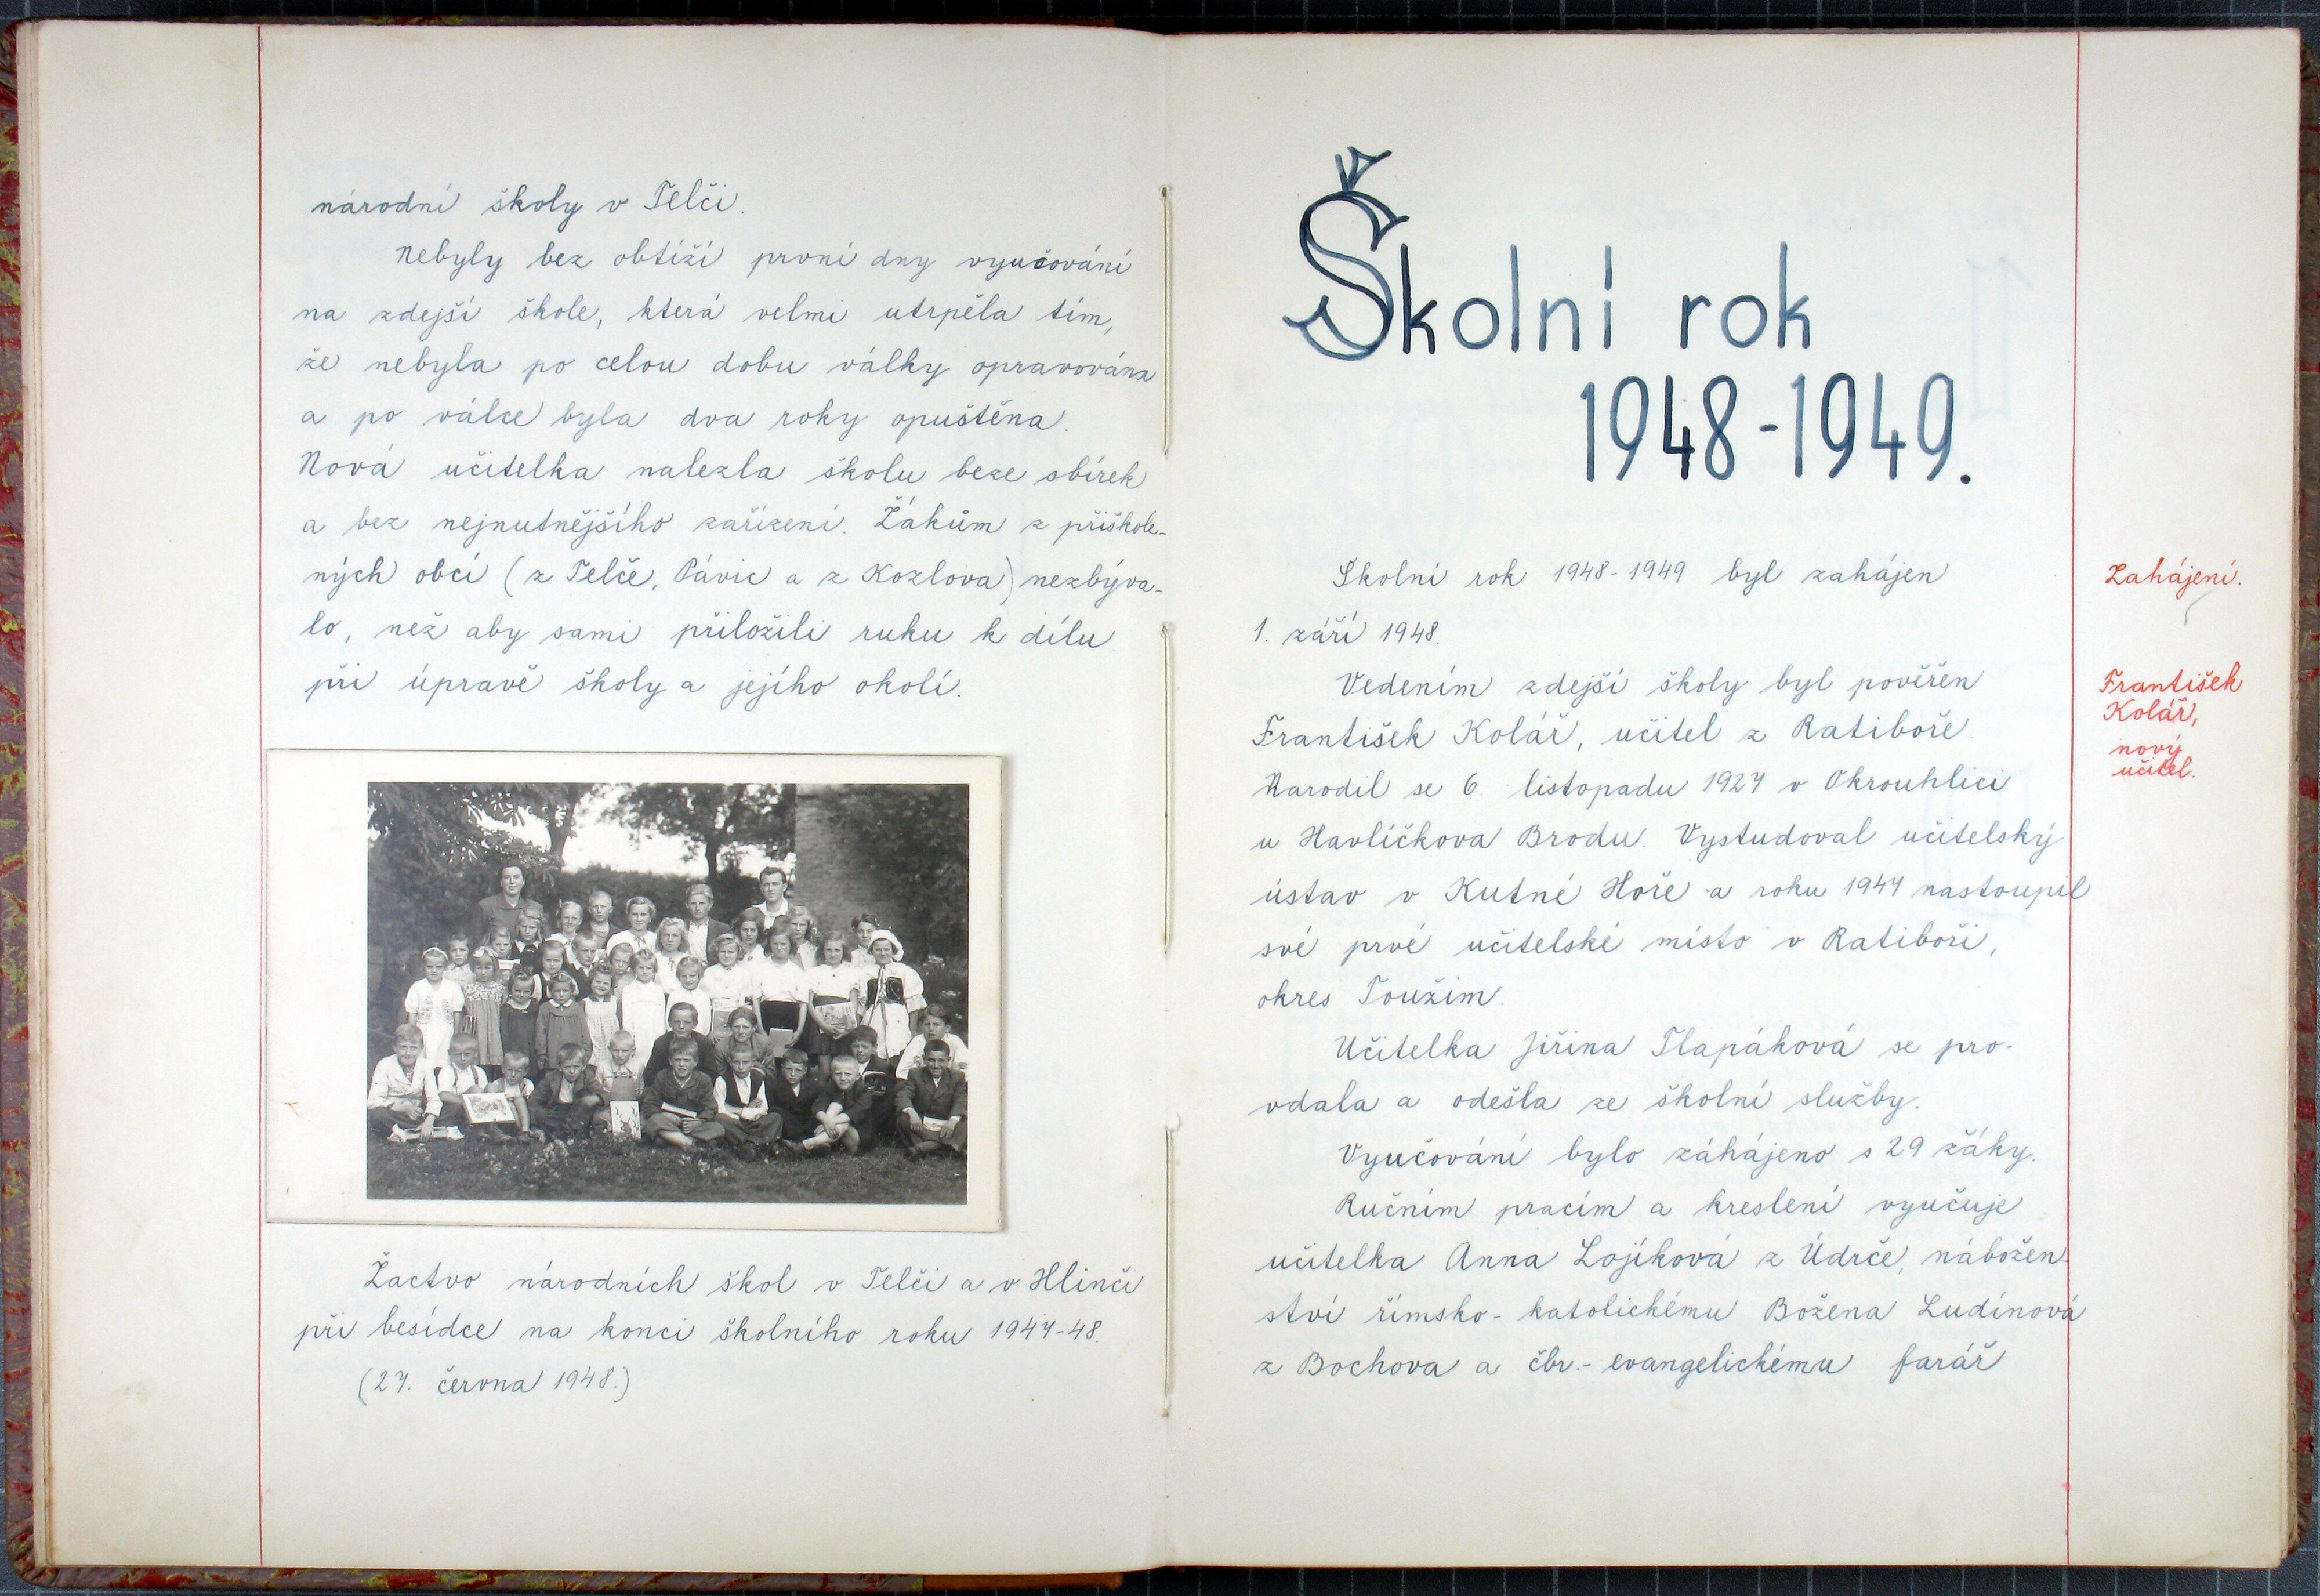 národní školy v Telči.
Nebyly bez obtíží první dny vyučování
na zdejší škole, která velmi utrpěla tím,
že nebyla po celou dobu války opravována
a po válce byla dva roky opuštěna.
Nová učitelka nalezla školu beze sbírek
a bez nejnutnějšího zařízení. Žákům z přiškole-
ných obcí (z Telče, Pávic a z Kozlova) nezbýva-
lo, než aby sami přiložili ruku k dílu
při úpravě školy a jejího okolí.
Žactvo národních škol v Telči a v Hlinči
při besídce na konci školního roku 1947-48.
(27. června 1948.)
Školní rok
1948-1949.
Školní rok 1948-1949 byl zahájen
1. září 1948.
Vedením zdejší školy byl pověřen
František Kolář, učitel z Ratiboře.
Narodil se 6. listopadu 1927 v Okrouhlici
u Havlíčkova Brodu. Vystudoval učitelský
ústav v Kutné Hoře a roku 1947 nastoupil
své prvé učitelské místo v Ratiboři,
okres Toužim.
Učitelka Jiřina Tlapáková se pro-
vdala a odešla ze školní služby.
Vyučování bylo záhájeno s 29 žáky.
Ručním pracím a kreslení vyučuje
učitelka Anna Lojíková z Údrče, nábožen-
ství římsko-katolickému Božena Ludínová
z Bochova a čbr.-evangelickému farář
Zahájení.
František
Kolář,
nový
učitel.